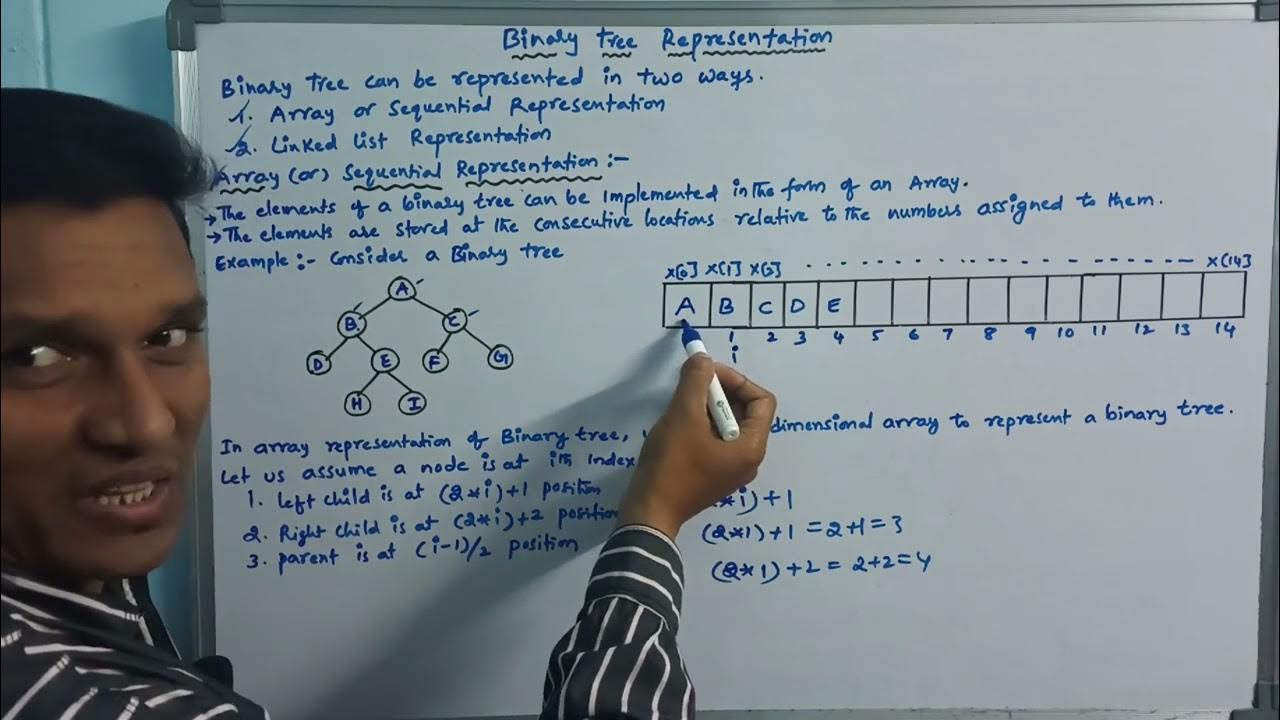 Binary Tree Representation
Binary Tree can be represented in two ways.
1. Array or Sequential Representation
2. Linked list Representation
Array (or) Sequential Representation :-
→ The elements of a binary tree can be implemented in the form of an Array.
→ The elements are stored at the consecutive locations relative to the numbers assigned to them.
Example :- Consider a Binary tree
x[0] x[1] x[2] x[14]
A B C D E
1 2 3 4 5 6 7 8 9 10 11 12 13 14
i
A
B C
D E F G
H I
In array representation of Binary tree, dimensional array to represent a binary tree.
Let us assume a node is at ith index
1. left child is at (2*i)+1 position
2. Right child is at (2*i)+2 position
3. parent is at (i-1)/2 position
*i)+1
(2*1)+1 = 2+1 = 3
(2*1)+2 = 2+2 = 4